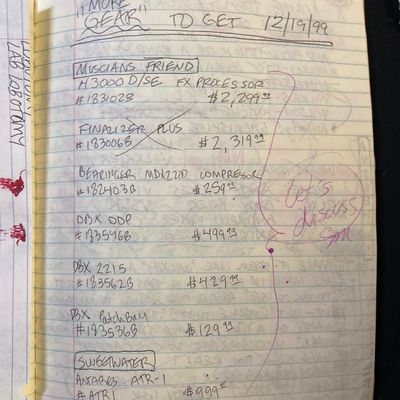 "MORE
GEAR" TO GET 12/19/99
MUSCIANS FRIEND
H3000 D/SE FX PROCESSOR
#183102B $2,299.99
FINALIZER PLUS
#183006B $2,319.99
BEHRINGER MDX2200 COMPRESOR
#182403B $259.99
DBX DDP
#183546B $499.99
DBX 2215
#183562B $429.99
DBX PatchBay
#183536B $129.99
SWEETWATER
ANTARES ATR-1
#ATR1 $999
Let's
discuss